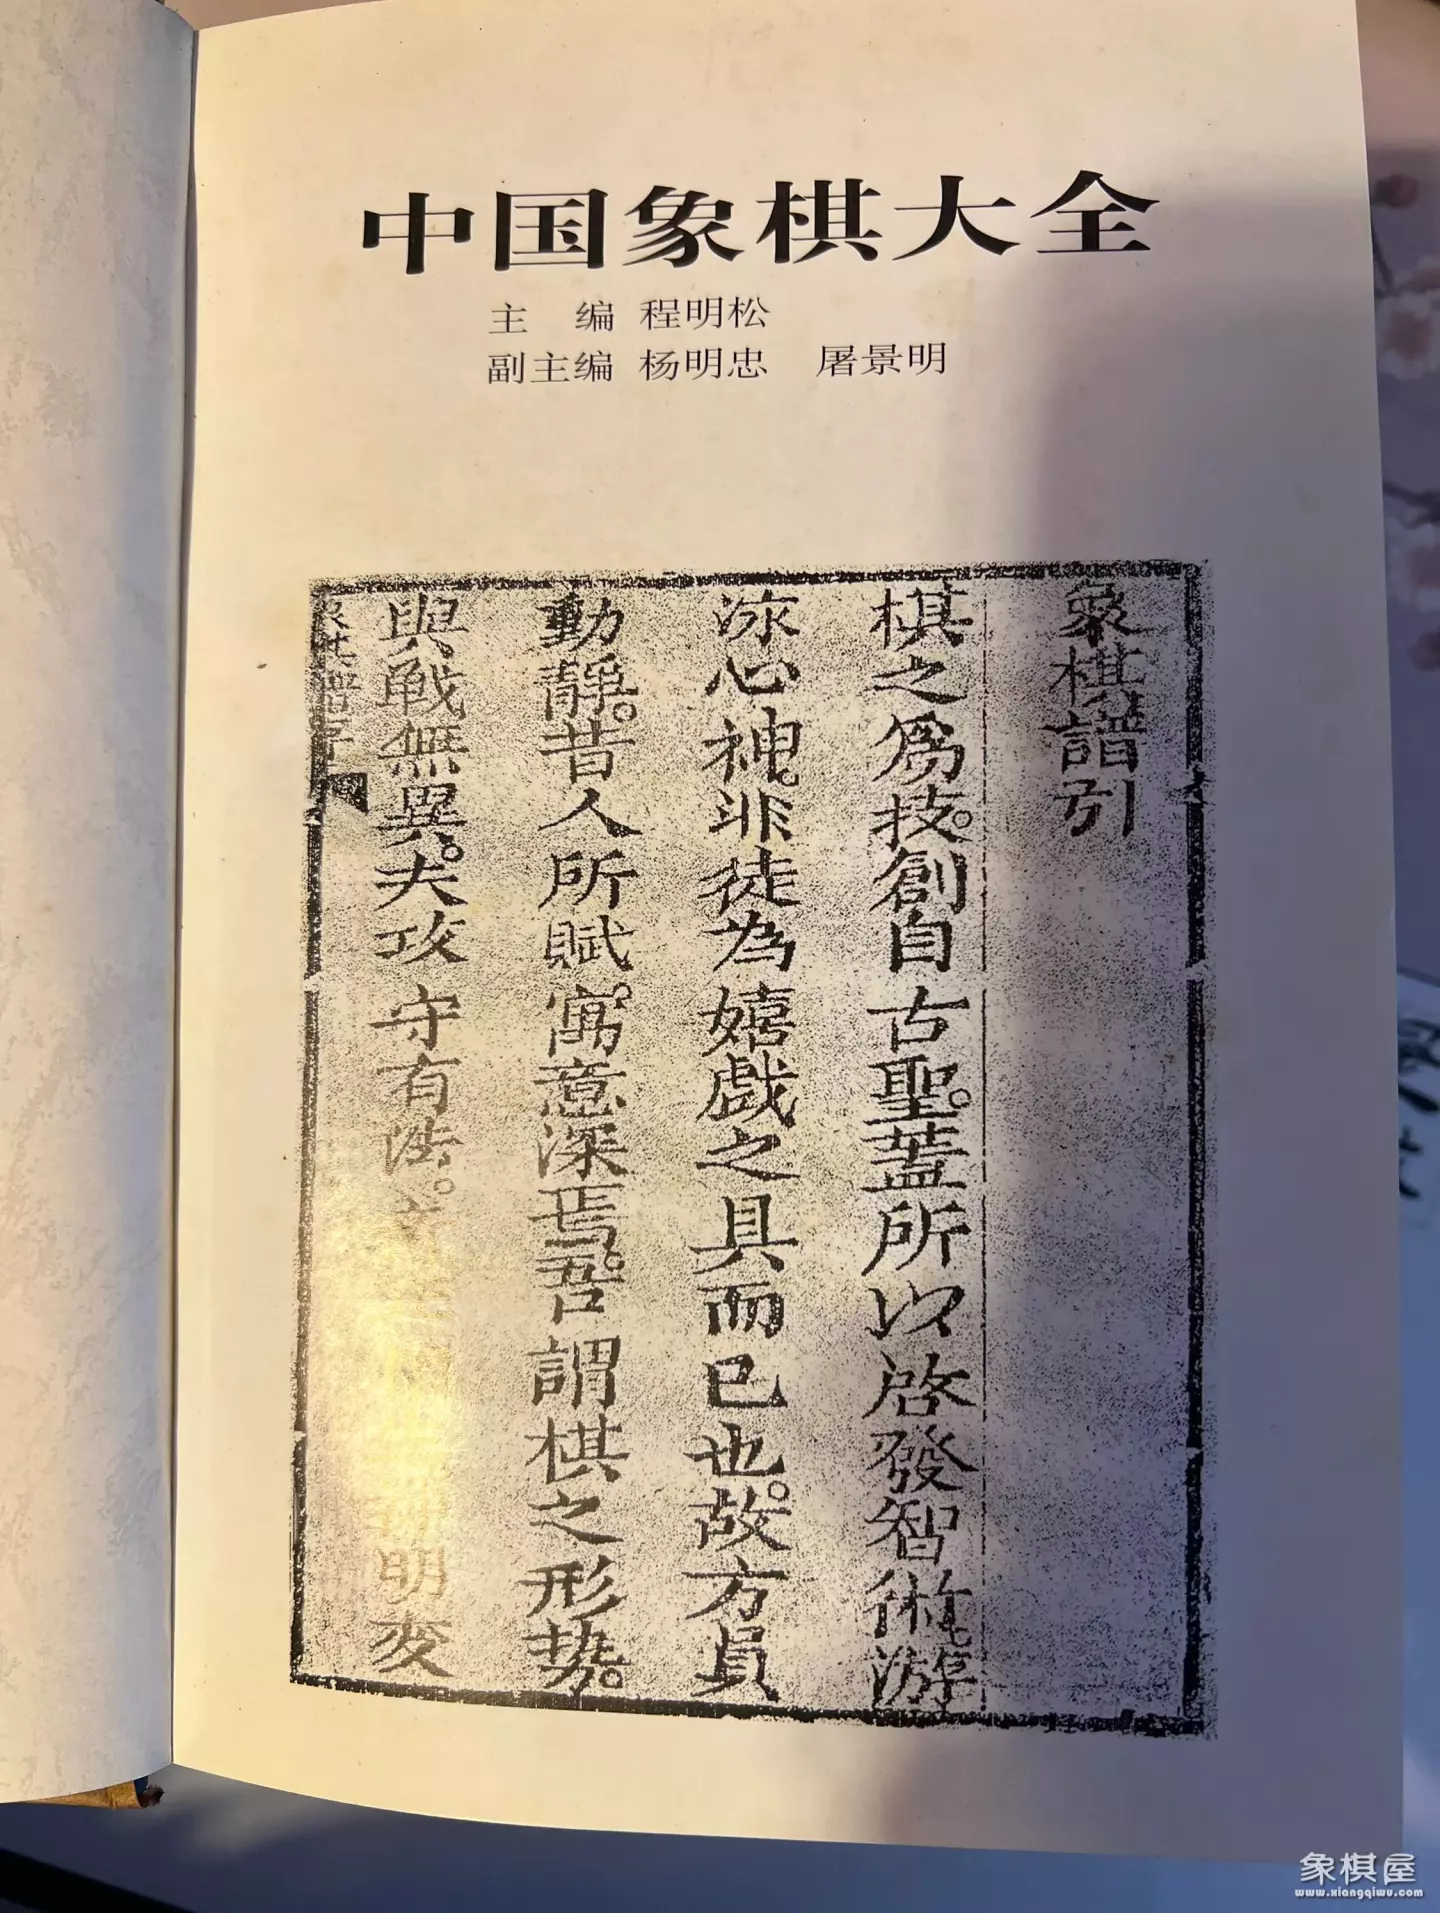 中国象棋大全
主 编 程明松
副主编 杨明忠 屠景明
象棋譜引
棋之爲技。創自古聖。蓋所以啓發智術。游
泳心神。非徒为嬉戲之具而已也。故方員
動靜。昔人所賦。寓意深焉。吾謂棋之形势。
與戦無異。夫攻守有法。明变
象棋譜序
象棋屋
www.xiangqiwu.com